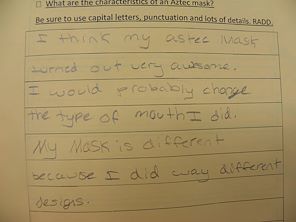 □ What are the characteristics of an Aztec mask?
Be sure to use capital letters, punctuation and lots of details. RADD.
I think my astec Mask
turned out very awsome.
I would probably change
the type of mouth I did.
My Mask is different
because I did way different
designs.